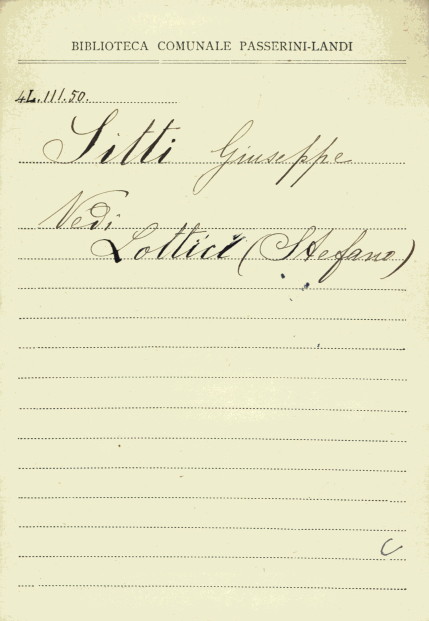 BIBLIOTECA COMUNALE PASSERINI-LANDI
4L.III.50.
Sitti Giuseppe
Vedi
Lottici (Stefano)
C